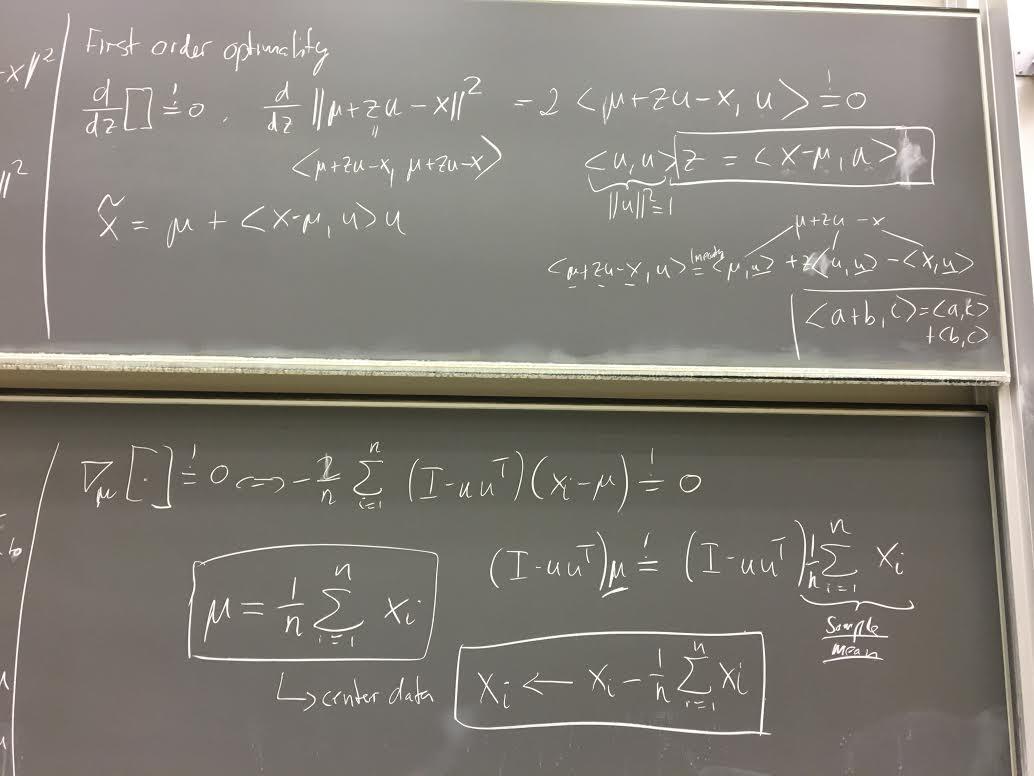 -x‖²
‖²
First order optimality
d/dz [] =! 0 , d/dz ‖μ+zu-x‖² = 2 <μ+zu-x, u> =! 0
‖
<μ+zu-x, μ+zu-x>
<u,u> z = <x-μ, u>
‖u‖²=1
x̃ = μ + <x-μ, u>u
μ+zu-x
<μ+zu-x, u> = <μ,u> + z<u,u> - <x,u>
<a+b,c>=<a,c>
+<b,c>
∇_μ [·] =! 0 <=> -2/n Σ_{i=1}^{n} (I-uuᵀ)(x_i-μ) =! 0
(I-uuᵀ)μ =! (I-uuᵀ) 1/n Σ_{i=1}^{n} x_i
Sample
mean
μ = 1/n Σ_{i=1}^{n} x_i
↳ center data
x_i ← x_i - 1/n Σ_{i=1}^{n} x_i